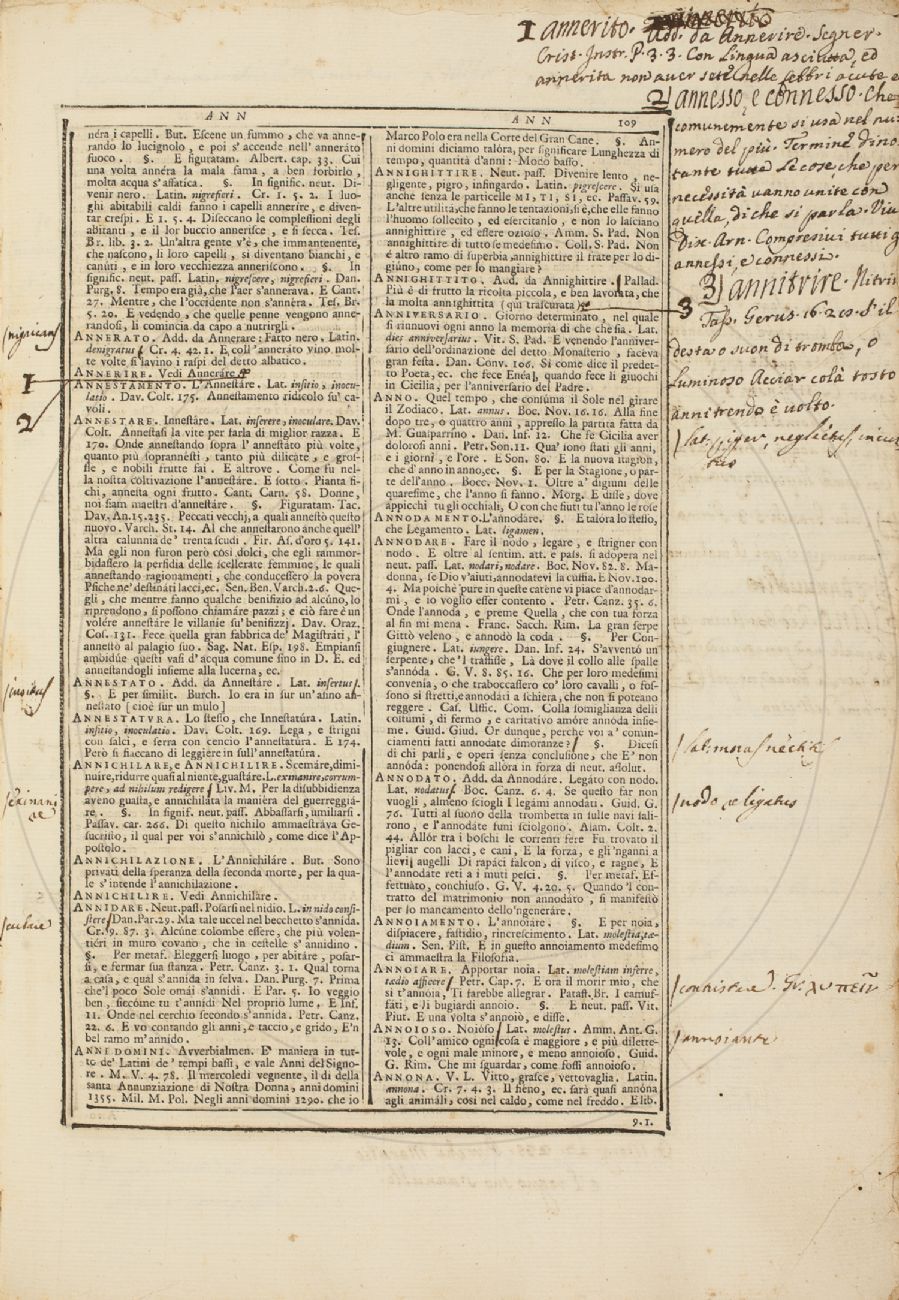 1 annerito. Add. da Annerire. Segner.
Crist. Instr. P. 3. 3. Con Lingua asciutta, ed
annerita non aver sete nelle febbri acute e
2) annesso, e connesso. che
comunemente si usa nel nu:
mero del più. Termine dino:
tante tutte le cose, che per
necessità vanno unite con
quella, di che si parla. Viv.
Diz. Arn. Compresivi tutti g
annessi, e connessi.
3) annitrire. Nitrir
Tass. Gerus. 16. 28. S' il
desta o suon di tromba, o
luminoso Acciar colà tosto
annitrendo è volto.
ANN
ANN 109
néra i capelli. But. Escene un fummo, che va anne-
rando lo lucignolo, e poi s'accende nell'anneráto
fuoco. §. E figuratam. Albert. cap. 33. Cui
una volta annéra la mala fama, a ben forbirlo,
molta acqua s'affatica. §. In signific. neut. Di-
venir nero. Latin. nigrefieri. Cr. 1. 5. 2. I luo-
ghi abitabili caldi fanno i capelli annerire, e diven-
tar crespi. E 1. 5. 4. Diseccano le complessioni degli
abitanti, e il lor buccio annerisce, e si secca. Tes.
Br. lib. 3. 2. Un'altra gente v'è, che immantenente,
che nascono, li loro capelli, si diventano bianchi, e
canúti, e in loro vecchiezza anneriscono. §. In
signific. neut. pass. Latin. nigrescere, nigrefieri. Dan.
Purg. 8. Tempo era già, che l'aer s'annerava. E Cant.
27. Mentre, che l'occidente non s'annéra. Tes. Br.
5. 20. E vedendo, che quelle penne vengono anne-
randosi, li comincia da capo a nutrirgli.
ANNERATO. Add. da Annerare: Fatto nero, Latin.
denigratus. Cr. 4. 42. 1. E coll'anneráto vino mol-
te volte si lavino i raspi del detto albatico.
ANNERIRE. Vedi Anneráre.
ANNESTAMENTO. L'Annestáre. Lat. insitio, inocu-
latio. Dav. Colt. 175. Annestamento ridicolo su' ca-
voli.
ANNESTARE. Innestáre. Lat. inserere, inoculare. Dav.
Colt. Annestasi la vite per farla di miglior razza. E
170. Onde annestando sopra l'annestáto più volte,
quanto più soprannésti, tanto più dilicáte, e gros-
se, e nobili frutte fai. E altrove. Come fu nel-
la nostra coltivazione l'annestáre. E sotto. Pianta fi-
chi, annesta ogni frutto. Cant. Carn. 58. Donne,
noi siam maestri d'annestáre. §. Figuratam. Tac.
Dav. An. 15. 235. Peccati vecchj, a quali annestò questo
nuovo. Varch. St. 14. Al che annestarono anche quell'
altra calunnia de' trenta scudi. Fir. As. d'oro 5. 141.
Ma egli non furon però così dolci, che egli rammor-
bidassero la perfidia delle scellerate femmine, le quali
annestando ragionamenti, che conducessero la povera
Psiche ne' destinati lacci, ec. Sen. Ben. Varch. 2. 6. Que-
gli, che mentre fanno qualche benifizio ad alcúno, lo
riprendono, si possono chiamáre pazzi, e ciò fare è un
volére annestáre le villanie su' benifizzj. Dav. Oraz.
Cos. 131. Fece quella gran fabbrica de' Magistráti, l'
annestò al palagio suo. Sag. Nat. Esp. 198. Empiansi
ambidúe questi vasi d'acqua comune sino in D. E. ed
annestandogli insieme alla lucerna, ec.
ANNESTATO. Add. da Annestáre. Lat. insertus.
§. E per similit. Burch. Io era in sur un'asino an-
nestato [cioè sur un mulo]
ANNESTATVRA. Lo stesso, che Innestatúra. Latin.
insitio, inoculatio. Dav. Colt. 169. Lega, e strigni
con salci, e serra con cencio l'annestatúra. E 174.
Però si ficcano di leggiére in sull'annestatúra.
ANNICHILARE, e ANNICHILIRE. Scemáre, dimi-
nuire, ridurre quasi al niente, guastáre. L. eximanire, corrum-
pere, ad nibilum redigere. Liv. M. Per la disubbidienza
aveno guasta, e annichilata la maniéra del guerreggiá-
re. §. In signif. neut. pass. Abbassarsi, umiliarsi.
Passav. car. 266. Di questo nichilo ammaestráva Ge-
sucristo, il qual per voi s'annichilò, come dice l'Ap-
postolo.
ANNICHILAZIONE. L'Annichiláre. But. Sono
privati della speranza della seconda morte, per la qua-
le s'intende l'annichilazione.
ANNICHILIRE. Vedi Annichiláre.
ANNIDARE. Neut. pass. Posarsi nel nidio. L. in nido consi-
stere. Dan. Par. 29. Ma tale uccel nel becchetto s'annida.
Cr. 9. 87. 3. Alcúne colombe essere, che più volen-
tiéri in muro covano, che in cestelle s'annidino.
§. Per metaf. Eleggersi luogo, per abitáre, posar-
si, e fermar sua stanza. Petr. Canz. 3. 1. Qual torna
a casa, e qual s'annida in selva. Dan. Purg. 7. Prima
che'l poco Sole omái s'annidi. E Par. 5. Io veggio
ben, siccóme tu t'annidi Nel proprio lume, E Inf.
11. Onde nel cerchio secondo s'annida. Petr. Canz.
22. 6. E vo contando gli anni, e taccio, e grido, E'n
bel ramo m'annido.
ANNI DOMINI. Avverbialmen. E' maniéra in tut-
to de' Latini de' tempi bassi, e vale Anni del Signo-
re. M. V. 4. 78. Il mercoledì vegnente, il dì della
santa Annunziazione di Nostra Donna, anni domini
1355. Mil. M. Pol. Negli anni domini 1290. che io
Marco Polo era nella Corte del Gran Cane. §. An-
ni domini diciamo talóra, per significare Lunghezza di
tempo, quantità d'anni: Modo basso.
ANNIGHITTIRE. Neut. pass. Divenire lento, ne-
gligente, pigro, infingardo. Latin. pigrescere. Si usa
anche senza le particelle MI, TI, SI, ec. Passav. 59.
L'altre utilità, che fanno le tentazioni, si è, che elle fanno
l'huomo sollecito, ed esercitanlo, e non lo lasciano
annighittire, ed essere ozioso. Amm. S. Pad. Non
annighittire di tutto se medesimo. Coll. S. Pad. Non
è altro ramo di superbia, annighittire il frate per lo di-
giúno, come per lo mangiáre?
ANNIGHITTITO. Add. da Annighittire. Pallad.
Più è di frutto la ricolta piccola, e ben lavorata, che
la molta annighittita (qui trascurata)
ANNIVERSARIO. Giorno determinato, nel quale
si rinnuovi ogni anno la memoria di che che sia. Lat.
dies anniversarius. Vit. S. Pad. E venendo l'anniver-
sario dell'ordinazione del detto Monasterio, facéva
gran festa. Dan. Conv. 106. Sì come dice il predet-
to Poeta, ec. che fece Enéa, quando fece li giuochi
in Cicilia, per l'anniversário del Padre.
ANNO. Quel tempo, che consúma il Sole nel giráre
il Zodiaco. Lat. annus. Boc. Nov. 16. 16. Alla fine
dopo tre, o quattro anni, appresso la partita fatta da
M. Guasparrino. Dan. Inf. 12. Che fe Cicilia aver
dolorosi anni. Petr. Son. 11. Qua' sono stati gli anni,
e i giorni, e l'ore. E Son. 80. E la nuova stagion,
che d'anno in anno, ec. §. E per la Stagione, o par-
te dell'anno. Bocc. Nov. 1. Oltre a' digiuni delle
quaresime, che l'anno si fanno. Morg. E disse, dove
appicchi tu gli occhiali, O con che fiuti tu l'anno le rose
ANNODAMENTO. L'annodáre. §. E talora lo stesso,
che Legamento. Lat. ligamen.
ANNODARE. Fare il nodo, legáre, e strigner con
nodo. E oltre al sentim. att. e pass. si adopera nel
neut. pass. Lat. nodari, nodare. Boc. Nov. 82. 8. Ma-
donna, se Dio v'aiuti, annodatevi la cuffia. E Nov. 100.
4. Ma poichè pure in queste caténe vi piace d'annodar-
mi, e io voglio esser contento. Petr. Canz. 35. 6.
Onde l'annoda, e preme Quella, che con tua forza
al fin mi mena. Franc. Sacch. Rim. La gran serpe
Gittò veleno, e annodò la coda. §. Per Con-
giugnere. Lat. iungere. Dan. Inf. 24. S'avventò un
serpente, che 'l trafisse, Là dove il collo alle spalle
s'annóda. G. V. 8. 85. 16. Che per loro medesimi
convenia, o che traboccassero co' loro cavalli, o fos-
sono sì stretti, e annodati a schiera, che non si poteano
reggere. Cas. Uffic. Com. Colla somiglianza delli
costúmi, di fermo, e caritativo amóre annóda insie-
me. Guid. Giud. Or dunque, perche voi a' comin-
ciamenti fatti annodate dimoranze? §. Dicesi
di chi parli, e operi senza conclusióne, che E' non
annóda: ponendosi allóra in forza di neut. assolut.
ANNODATO. Add. da Annodáre. Legáto con nodo.
Lat. nodatus. Boc. Canz. 6. 4. Se questo far non
vuogli, almeno sciogli i legámi annodati. Guid. G.
76. Tutti al suono della trombetta in sulle navi sali-
rono, e l'annodate funi sciolgono. Alam. Colt. 2.
44. Allór tra i boschi le correnti fere Fu trovato il
pigliar con lacci, e cani, E la forza, e gli 'nganni a
lievi augelli Di rapáci falcon, di visco, e ragne, E
l'annodate reti a i muti pesci. §. Per metaf. Ef-
fettuáto, conchiuso. G. V. 4. 20. 5. Quando 'l con-
tratto del matrimonio non annodáto, si manifestò
per lo mancamento dello 'ngenerare.
ANNOIAMENTO. L'annoiáre. §. E per noia,
dispiacere, fastidio, rincrescimento. Lat. molestia, tæ-
dium. Sen. Pist. E in questo annoiamento medesimo
ci ammaestra la Filosofia.
ANNOIARE. Apportar noia. Lat. molestiam inferre,
tædio afficere. Petr. Cap. 7. E ora il morir mio, che
sì t'annoia, Ti farebbe allegrar. Pataff. Br. I camuf-
fati, e li bugiardi annoio. §. E neut. pass. Vit.
Plut. E una volta s'annoiò, e disse.
ANNOIOSO. Noióso. Lat. molestus. Amm. Ant. G.
13. Coll'amico ogni cosa è maggiore, e più dilette-
vole, e ogni male minore, e meno annoioso. Guid.
G. Rim. Che mi sguardar, come fossi annoioso.
ANNONA. V. L. Vitto, grasce, vettovaglia. Latin.
annona. Cr. 7. 4. 3. Il fieno, ec. sarà quasi annóna
agli animáli, così nel caldo, come nel freddo. E lib.
9. 1.
1
2
3
/nodo ligatus
/annoiante